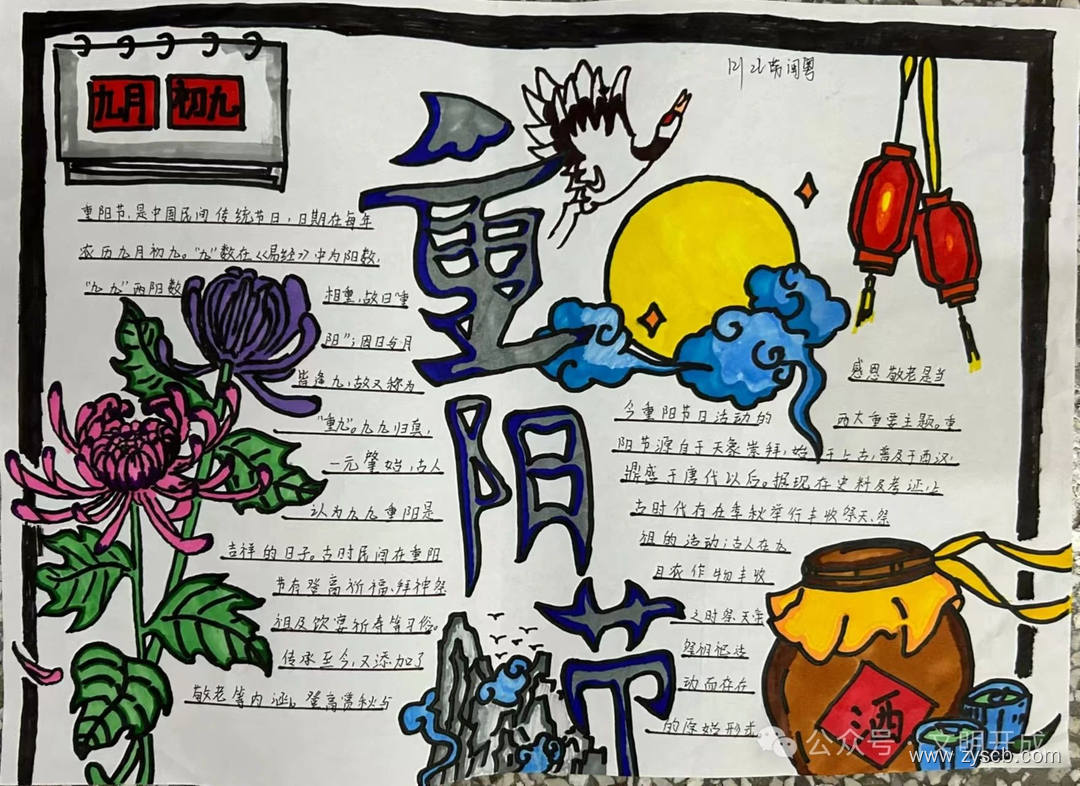 九月 初九
重阳节
重阳节,是中国民间传统节日,日期在每年
农历九月初九。"九"数在《易经》中为阳数,
"九九"两阳数
相重,故曰"重
阳";因日与月
皆逢九,故又称为
"重九"。九九归真,
一元肇始,古人
认为九九重阳是
吉祥的日子。古时民间在重阳
节有登高祈福、拜神祭
祖及饮宴祈寿等习俗。
传承至今,又添加了
敬老等内涵。登高赏秋与
感恩敬老是当
今重阳节日活动的
两大重要主题。重
阳节源自于天象崇拜,始于上古,普及于西汉,
鼎盛于唐代以后。据现存史料及考证,上
古时代存在季秋举行丰收祭天、祭
祖的活动;古人在九
月农作物丰收
之时祭天帝
祭祖
动而存在
的原始形式
酒
公众号·文明开成
www.zyscb.com